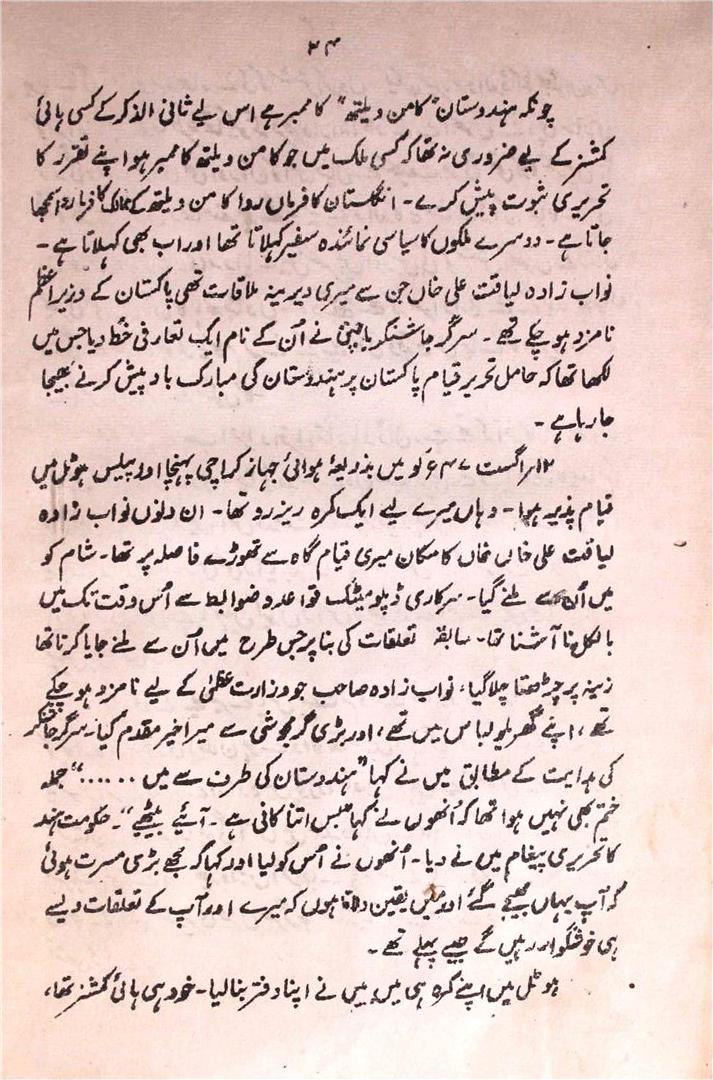 ۲۴
چونکہ ہندوستان "کامن ویلتھ" کا ممبر ہے اس لیے ثانی الذکر کے کسی ہائی
کمشنر کے لیے ضروری نہ تھا کہ کسی ملک میں جو کامن ویلتھ کا ممبر ہو اپنے تقرر کا
تحریری ثبوت پیش کرے۔ انگلستان کا فرماں روا کامن ویلتھ کے ممالک کا فرماں روا سمجھا
جاتا ہے۔ دوسرے ملکوں کا سیاسی نمائندہ سفیر کہلاتا تھا اور اب بھی کہلاتا ہے۔
نواب زادہ لیاقت علی خاں جن سے میری دیرینہ ملاقات تھی پاکستان کے وزیر اعظم
نامزد ہو چکے تھے۔ سر گرجا شنکر باجپئی نے اُن کے نام ایک تعارفی خط دیا جس میں
لکھا تھا کہ حامل تحریر قیام پاکستان پر ہندوستان کی مبارک باد پیش کرنے بھیجا
جا رہا ہے۔
۱۲ اگست ۴۷ء کو میں بذریعہ ہوائی جہاز کراچی پہنچا اور پیلیس ہوٹل میں
قیام پذیر ہوا۔ وہاں میرے لیے ایک کمرہ ریزرو تھا۔ ان دنوں نواب زادہ
لیاقت علی خاں کا مکان میری قیام گاہ سے تھوڑے فاصلہ پر تھا۔ شام کو
میں اُن سے ملنے گیا۔ سرکاری ڈپلومیٹک قواعد و ضوابط سے اُس وقت تک میں
بالکل نا آشنا تھا۔ سابقہ تعلقات کی بنا پر جس طرح میں اُن سے ملنے جایا کرتا تھا
زینہ پر چڑھتا چلا گیا، نواب زادہ صاحب جو وزارت عظمیٰ کے لیے نامزد ہو چکے
تھے، اپنے گھریلو لباس میں تھے، اور بڑی گرمجوشی سے میرا خیر مقدم کیا۔ سر گرجا شنکر
کی ہدایت کے مطابق میں نے کہا "ہندوستان کی طرف سے میں ......" جملہ
ختم بھی نہیں ہوا تھا کہ اُنھوں نے کہا "بس اتنا کافی ہے۔ آئیے بیٹھیے"۔ حکومت ہند
کا تحریری پیغام میں نے دیا۔ اُنھوں نے اُس کو لیا اور کہا کہ مجھے بڑی مسرت ہوئی
کہ آپ یہاں بھیجے گئے اور میں یقین دلاتا ہوں کہ میرے اور آپ کے تعلقات ویسے
ہی خوشگوار رہیں گے جیسے پہلے تھے۔
ہوٹل میں اپنے کمرہ ہی میں میں نے اپنا دفتر بنا لیا۔ خود ہی ہائی کمشنر تھا،